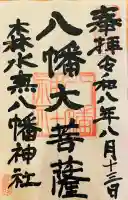 奉拝 令和八年八月十三日
八幡大菩薩
森水無八幡神社